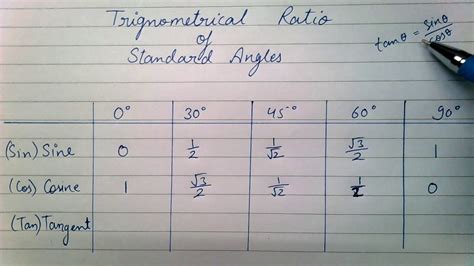 Trignometrical Ratio
of
Standard Angles
tanθ = sinθ/cosθ
0° 30° 45° 60° 90°
(Sin) Sine 0 1/2 1/√2 √3/2 1
(Cos) Cosine 1 √3/2 1/√2 1/2 0
(Tan) Tangent